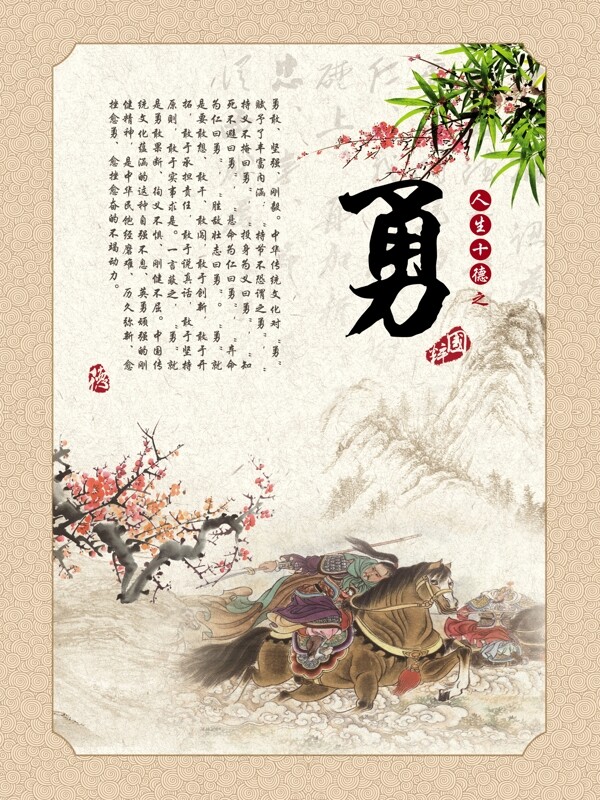 人生十德之
勇
国粹
勇敢、坚强、刚毅。中华传统文化对“勇”
赋予了丰富内涵，“持节不恐谓之勇。”“
持义不掩曰勇”，“投身为义曰勇”。“知
死不避曰勇”，“悬命为仁曰勇”。“弃命
为仁曰勇”，“胜敌壮志曰勇”。“勇”就
是要敢想、敢干、敢闯，敢于创新，敢于开
拓，敢于承担责任，敢于说真话，敢于坚持
原则，敢于实事求是。一言蔽之，“勇”就
是勇敢果断、徇义不惧，刚健不屈。中国传
统文化蕴涵的这种自强不息、英勇顽强的刚
健精神，是中华民他经磨难、历久弥新、愈
挫愈勇、愈挫愈奋的不竭动力。
德